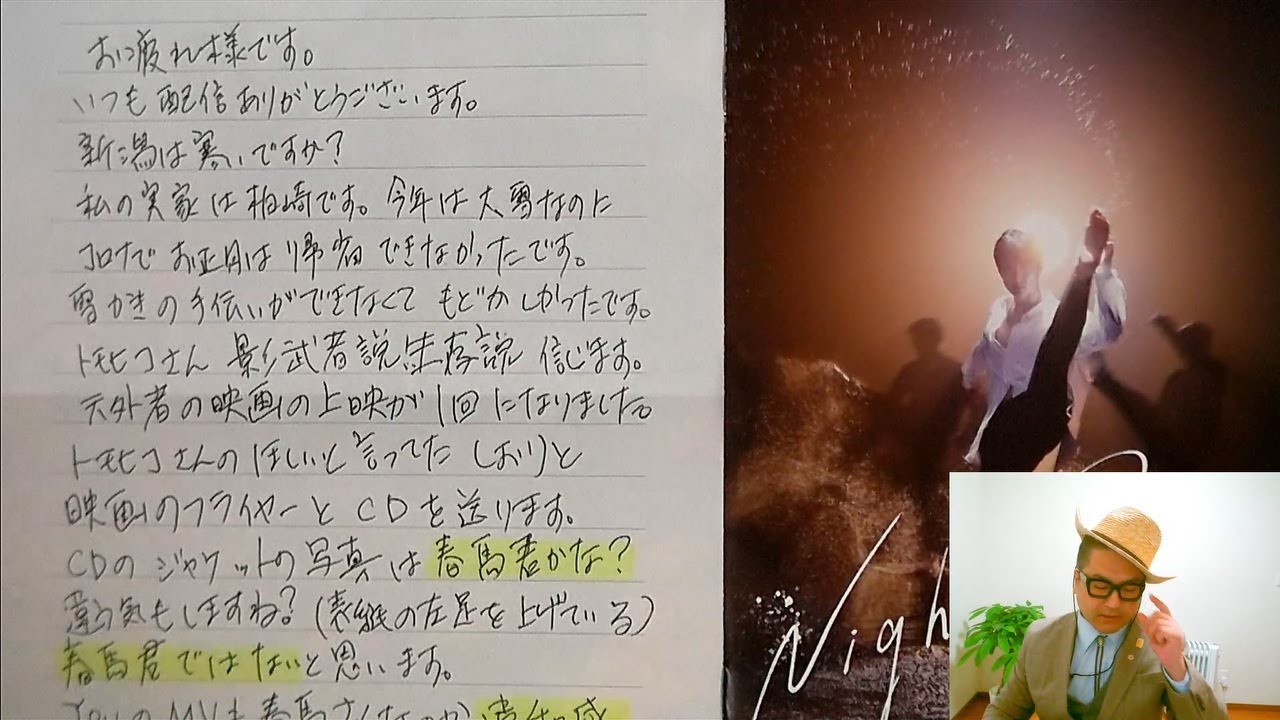 お疲れ様です。
いつも配信ありがとうございます。
新潟は寒いですか?
私の実家は柏崎です。今年は大雪なのに
コロナでお正月は帰省できなかったです。
雪かきの手伝いができなくてもどかしかったです。
トモヒコさん影武者説生存説信じます。
天外者の映画の上映が1回になりました。
トモヒコさんのほしいと言ってたしおりと
映画のフライヤーとCDを送ります。
CDのジャケットの写真は春馬君かな?
違う気もしますね?(表紙の左足を上げている)
春馬君ではないと思います。
YouのMVも春馬さんなのか違和感
Nigh